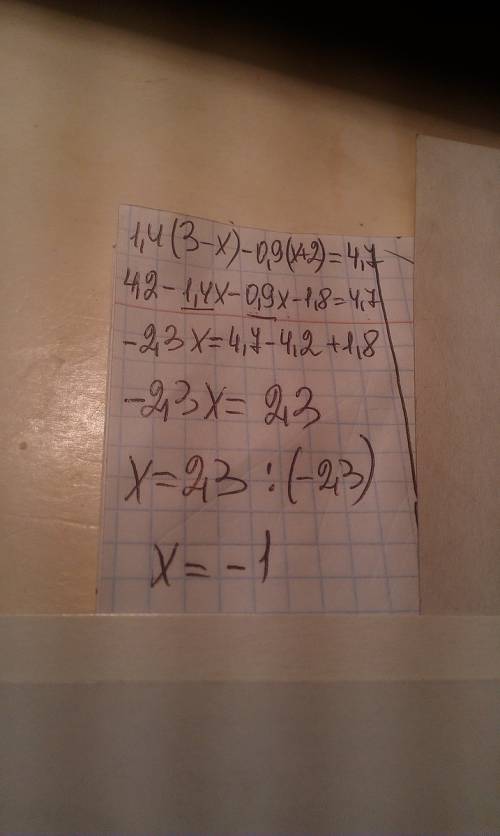 1,4(3-x)-0,9(x+2)=4,7
4,2-1,4x-0,9x-1,8=4,7
-2,3x=4,7-4,2+1,8
-2,3x=2,3
x=2,3:(-2,3)
x=-1